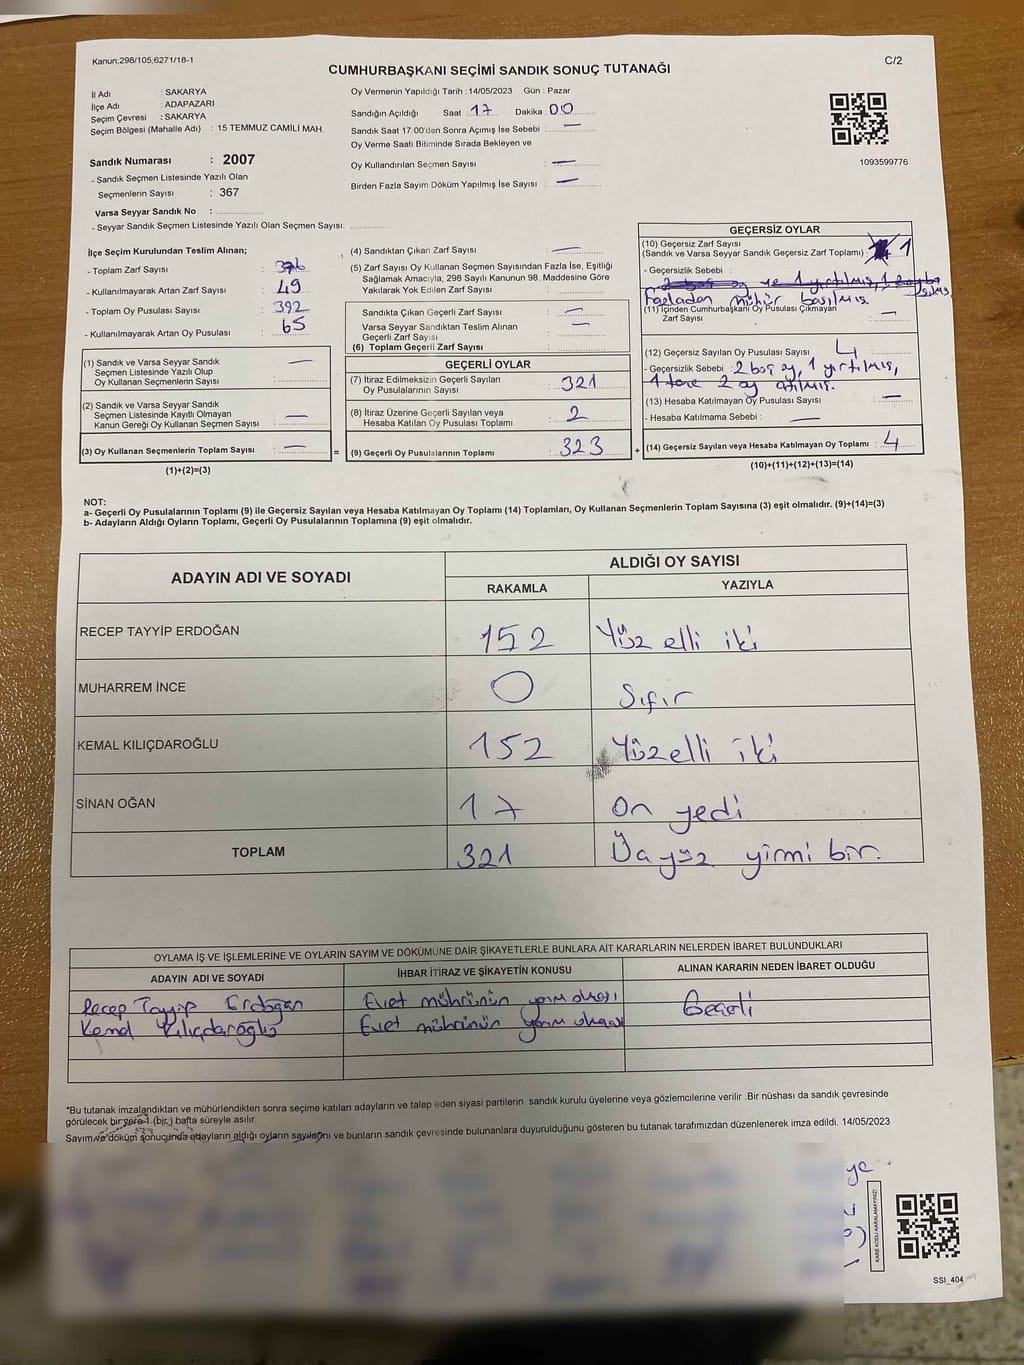 Kanun;298/105,6271/18-1
C/2
CUMHURBAŞKANI SEÇİMİ SANDIK SONUÇ TUTANAĞI
İl Adı : SAKARYA
İlçe Adı : ADAPAZARI
Seçim Çevresi : SAKARYA
Seçim Bölgesi (Mahalle Adı) : 15 TEMMUZ CAMİLİ MAH.
Sandık Numarası : 2007
- Sandık Seçmen Listesinde Yazılı Olan
Seçmenlerin Sayısı : 367
Varsa Seyyar Sandık No :
- Seyyar Sandık Seçmen Listesinde Yazılı Olan Seçmen Sayısı:
Oy Vermenin Yapıldığı Tarih : 14/05/2023 Gün : Pazar
Sandığın Açıldığı Saat : 17 Dakika : 00
Sandık Saat 17:00'den Sonra Açımış İse Sebebi : —
Oy Verme Saati Bitiminde Sırada Bekleyen ve
Oy Kullandırılan Seçmen Sayısı : —
Birden Fazla Sayım Döküm Yapılmış İse Sayısı : —
1093599776
İlçe Seçim Kurulundan Teslim Alınan;
- Toplam Zarf Sayısı : 376
- Kullanılmayarak Artan Zarf Sayısı : 49
- Toplam Oy Pusulası Sayısı : 392
- Kullanılmayarak Artan Oy Pusulası : 65
(1) Sandık ve Varsa Seyyar Sandık
Seçmen Listesinde Yazılı Olup
Oy Kullanan Seçmenlerin Sayısı : —
(2) Sandık ve Varsa Seyyar Sandık
Seçmen Listesinde Kayıtlı Olmayan
Kanun Gereği Oy Kullanan Seçmen Sayısı : —
(3) Oy Kullanan Seçmenlerin Toplam Sayısı : —
(1)+(2)=(3)
=
(4) Sandıktan Çıkan Zarf Sayısı : —
(5) Zarf Sayısı Oy Kullanan Seçmen Sayısından Fazla İse, Eşitliği
Sağlamak Amacıyla; 298 Sayılı Kanunun 98. Maddesine Göre
Yakılarak Yok Edilen Zarf Sayısı :
Sandıkta Çıkan Geçerli Zarf Sayısı : —
Varsa Seyyar Sandıktan Teslim Alınan
Geçerli Zarf Sayısı : —
(6) Toplam Geçerli Zarf Sayısı :
GEÇERLİ OYLAR
(7) İtiraz Edilmeksizin Geçerli Sayılan
Oy Pusulasının Sayısı : 321
(8) İtiraz Üzerine Geçerli Sayılan veya
Hesaba Katılan Oy Pusulası Toplamı : 2
(9) Geçerli Oy Pusulalarının Toplamı : 323
+
GEÇERSİZ OYLAR
(10) Geçersiz Zarf Sayısı
(Sandık ve Varsa Seyyar Sandık Geçersiz Zarf Toplamı) : 1
- Geçersizlik Sebebi :
2 boş oy ve 1 yırtılmış, 1
Fazladan mühür basılmış
(11) İçinden Cumhurbaşkanı Oy Pusulası Çıkmayan
Zarf Sayısı : —
(12) Geçersiz Sayılan Oy Pusulası Sayısı : 4
- Geçersizlik Sebebi : 2 boş oy, 1 yırtılmış,
1 tane 2 oy atılmış.
(13) Hesaba Katılmayan Oy Pusulası Sayısı : —
- Hesaba Katılmama Sebebi : —
(14) Geçersiz Sayılan veya Hesaba Katılmayan Oy Toplamı : 4
(10)+(11)+(12)+(13)=(14)
NOT:
a- Geçerli Oy Pusulalarının Toplamı (9) ile Geçersiz Sayılan veya Hesaba Katılmayan Oy Toplamı (14) Toplamları, Oy Kullanan Seçmenlerin Toplam Sayısına (3) eşit olmalıdır. (9)+(14)=(3)
b- Adayların Aldığı Oyların Toplamı, Geçerli Oy Pusulalarının Toplamına (9) eşit olmalıdır.
ADAYIN ADI VE SOYADI
ALDIĞI OY SAYISI
RAKAMLA YAZIYLA
RECEP TAYYİP ERDOĞAN 152 Yüz elli iki
MUHARREM İNCE 0 Sıfır
KEMAL KILIÇDAROĞLU 152 Yüzelli iki
SİNAN OĞAN 17 On yedi
TOPLAM 321 Üç yüz yirmi bir.
OYLAMA İŞ VE İŞLEMLERİNE VE OYLARIN SAYIM VE DÖKÜMÜNE DAİR ŞİKAYETLERLE BUNLARA AİT KARARLARIN NELERDEN İBARET BULUNDUKLARI
ADAYIN ADI VE SOYADI İHBAR İTİRAZ VE ŞİKAYETİN KONUSU ALINAN KARARIN NEDEN İBARET OLDUĞU
Recep Tayyip Erdoğan Evet mührünün yarım olması Geçerli
Kemal Kılıçdaroğlu Evet mührünün yarım olması
*Bu tutanak imzalandıktan ve mühürlendikten sonra seçime katılan adayların ve talep eden siyasi partilerin sandık kurulu üyelerine veya gözlemcilerine verilir .Bir nüshası da sandık çevresinde
görülecek bir yere 1 (bir) hafta süreyle asılır.
Sayım ve döküm sonucunda adayların aldığı oyların sayılarını ve bunların sandık çevresinde bulunanlara duyurulduğunu gösteren bu tutanak tarafımızdan düzenlenerek imza edildi. 14/05/2023
ye
KARE KODU KARALAMAYINIZ!
SSI_404